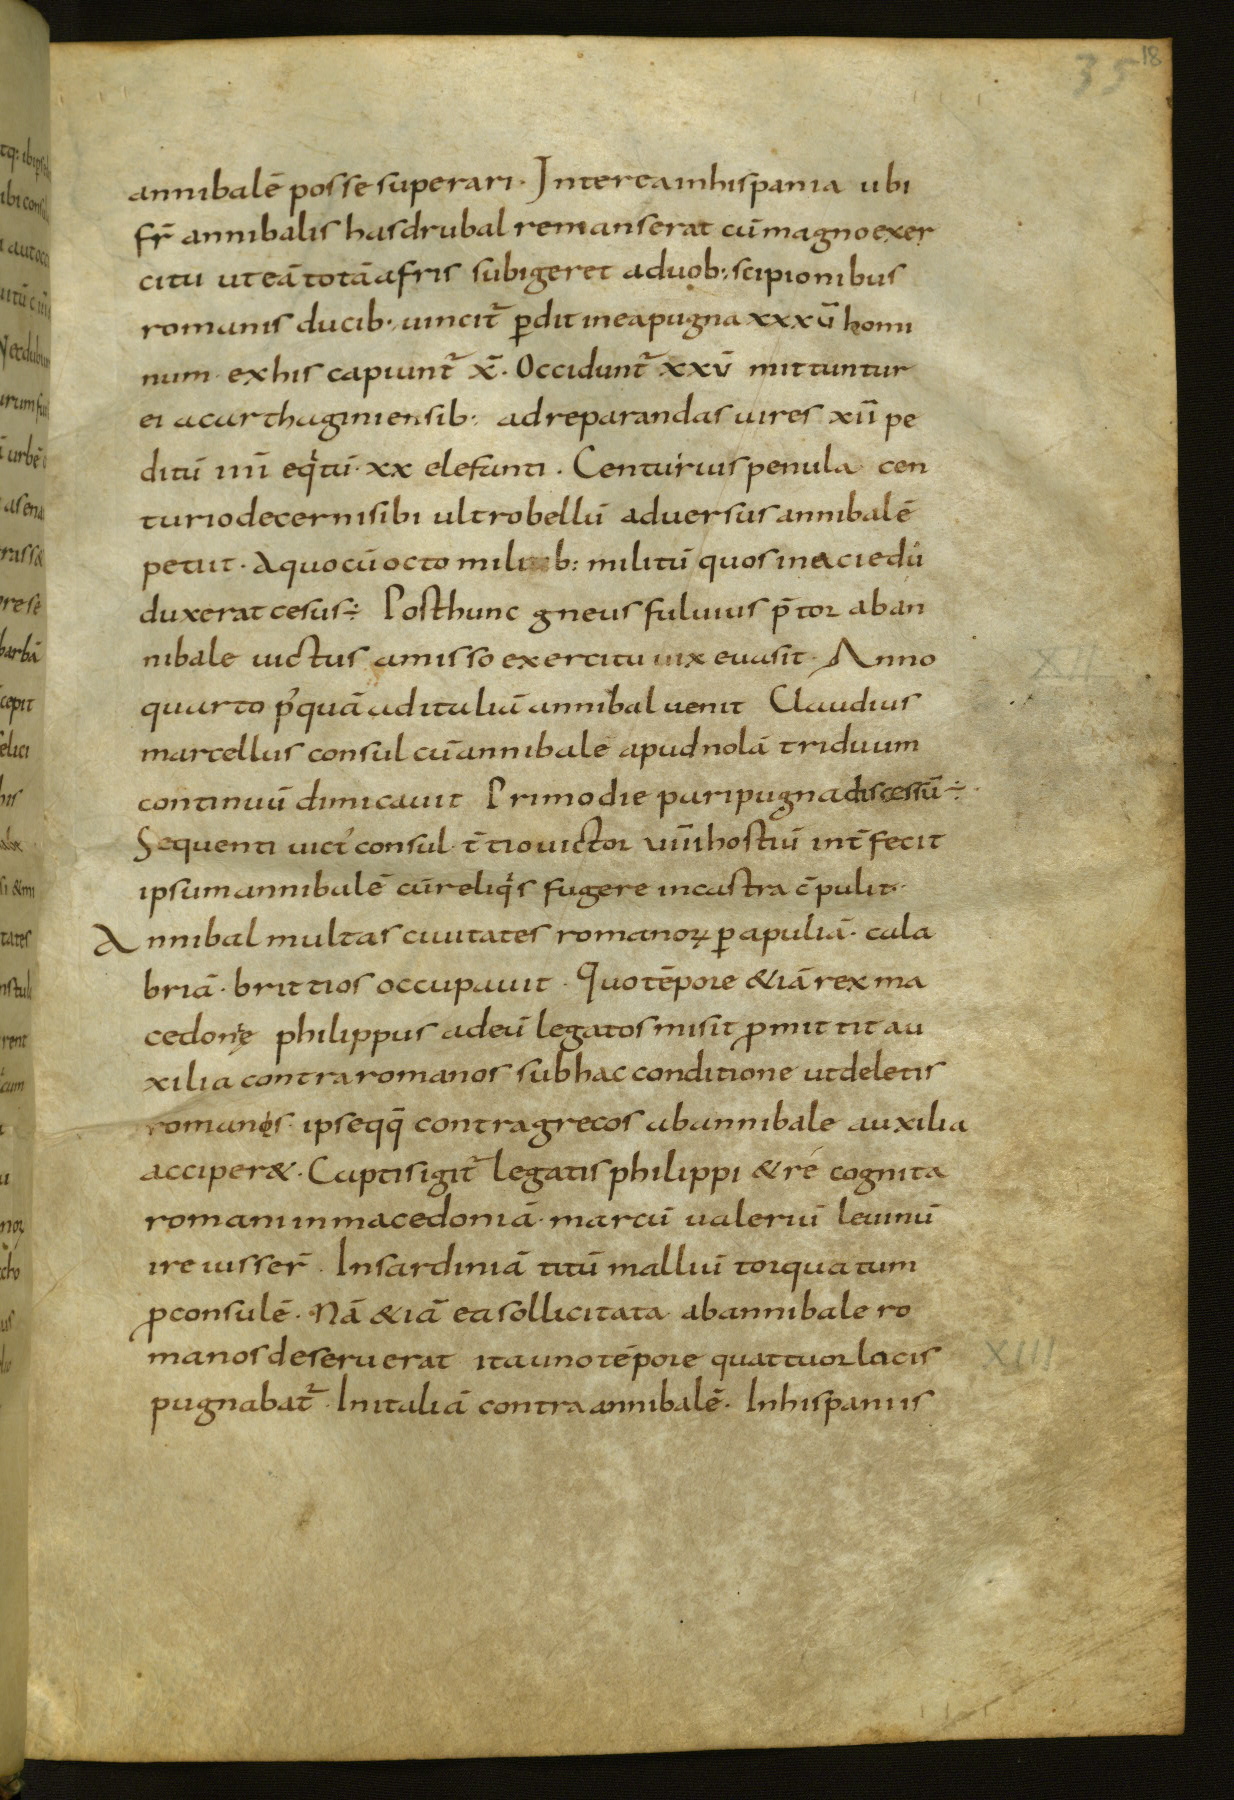 35 18
annibalē posse superari. Interea inhispania ubi
fr̄ annibalis hasdrubal remanserat cū magno exer
citu ut eā totā afris subigeret aduob: scipionibus
romanis ducib: uincit᷑ ꝑdit inea pugna xxxv̄ homi
num ex his capiunt᷑ x̄. Occidunt᷑ xxv̄ mittuntur
ei acarthaginiensib: adreparandas uires xii̅ pe
ditū iiii̅ eqͥtū. xx elefanti. Centurius penula cen
turio decerni sibi ultro bellū aduersus annibalē
petiit. Aquo cū octo milib: militū quos inacie dū
duxerat cesus ÷ Posthunc gneus fuluius p̄tor aban
nibale uictus amisso exercitu uix euasit. Anno
XII
quarto p᷒quā ad italiā annibal uenit Claudius
marcellus consul cū annibale apud nolā triduum
continuū dimicauit Primo die pari pugna discessū ÷.
Sequenti uict᷒ consul t̄tio uictor viii̅ hostiū int̄fecit
ipsum annibalē cū reliqͥs fugere incastra c̄pulit.
Annibal multas ciuitates romanoꝝ ꝑ apuliā. cala
briā. brittios occupauit. Quo tēpore &iā rex ma
cedonię philippus ad eū legatos misit ꝓmittit au
xilia contra romanos sub hac conditione ut deletis
romanis ipse qq̄ contra grecos abannibale auxilia
acciper&. Captis igit᷑ legatis philippi & re cognita
romani inmacedoniā. marcū ualeriū leuinū
ire iusser̄. Insardiniā titū malliū torquatum
ꝓconsulē. Nā &iā ea sollicitata abannibale ro
manos deseruerat ita uno tēpore quattuor locis
XIII
pugnabat᷑. Initaliā contra annibalē. Inhispaniis